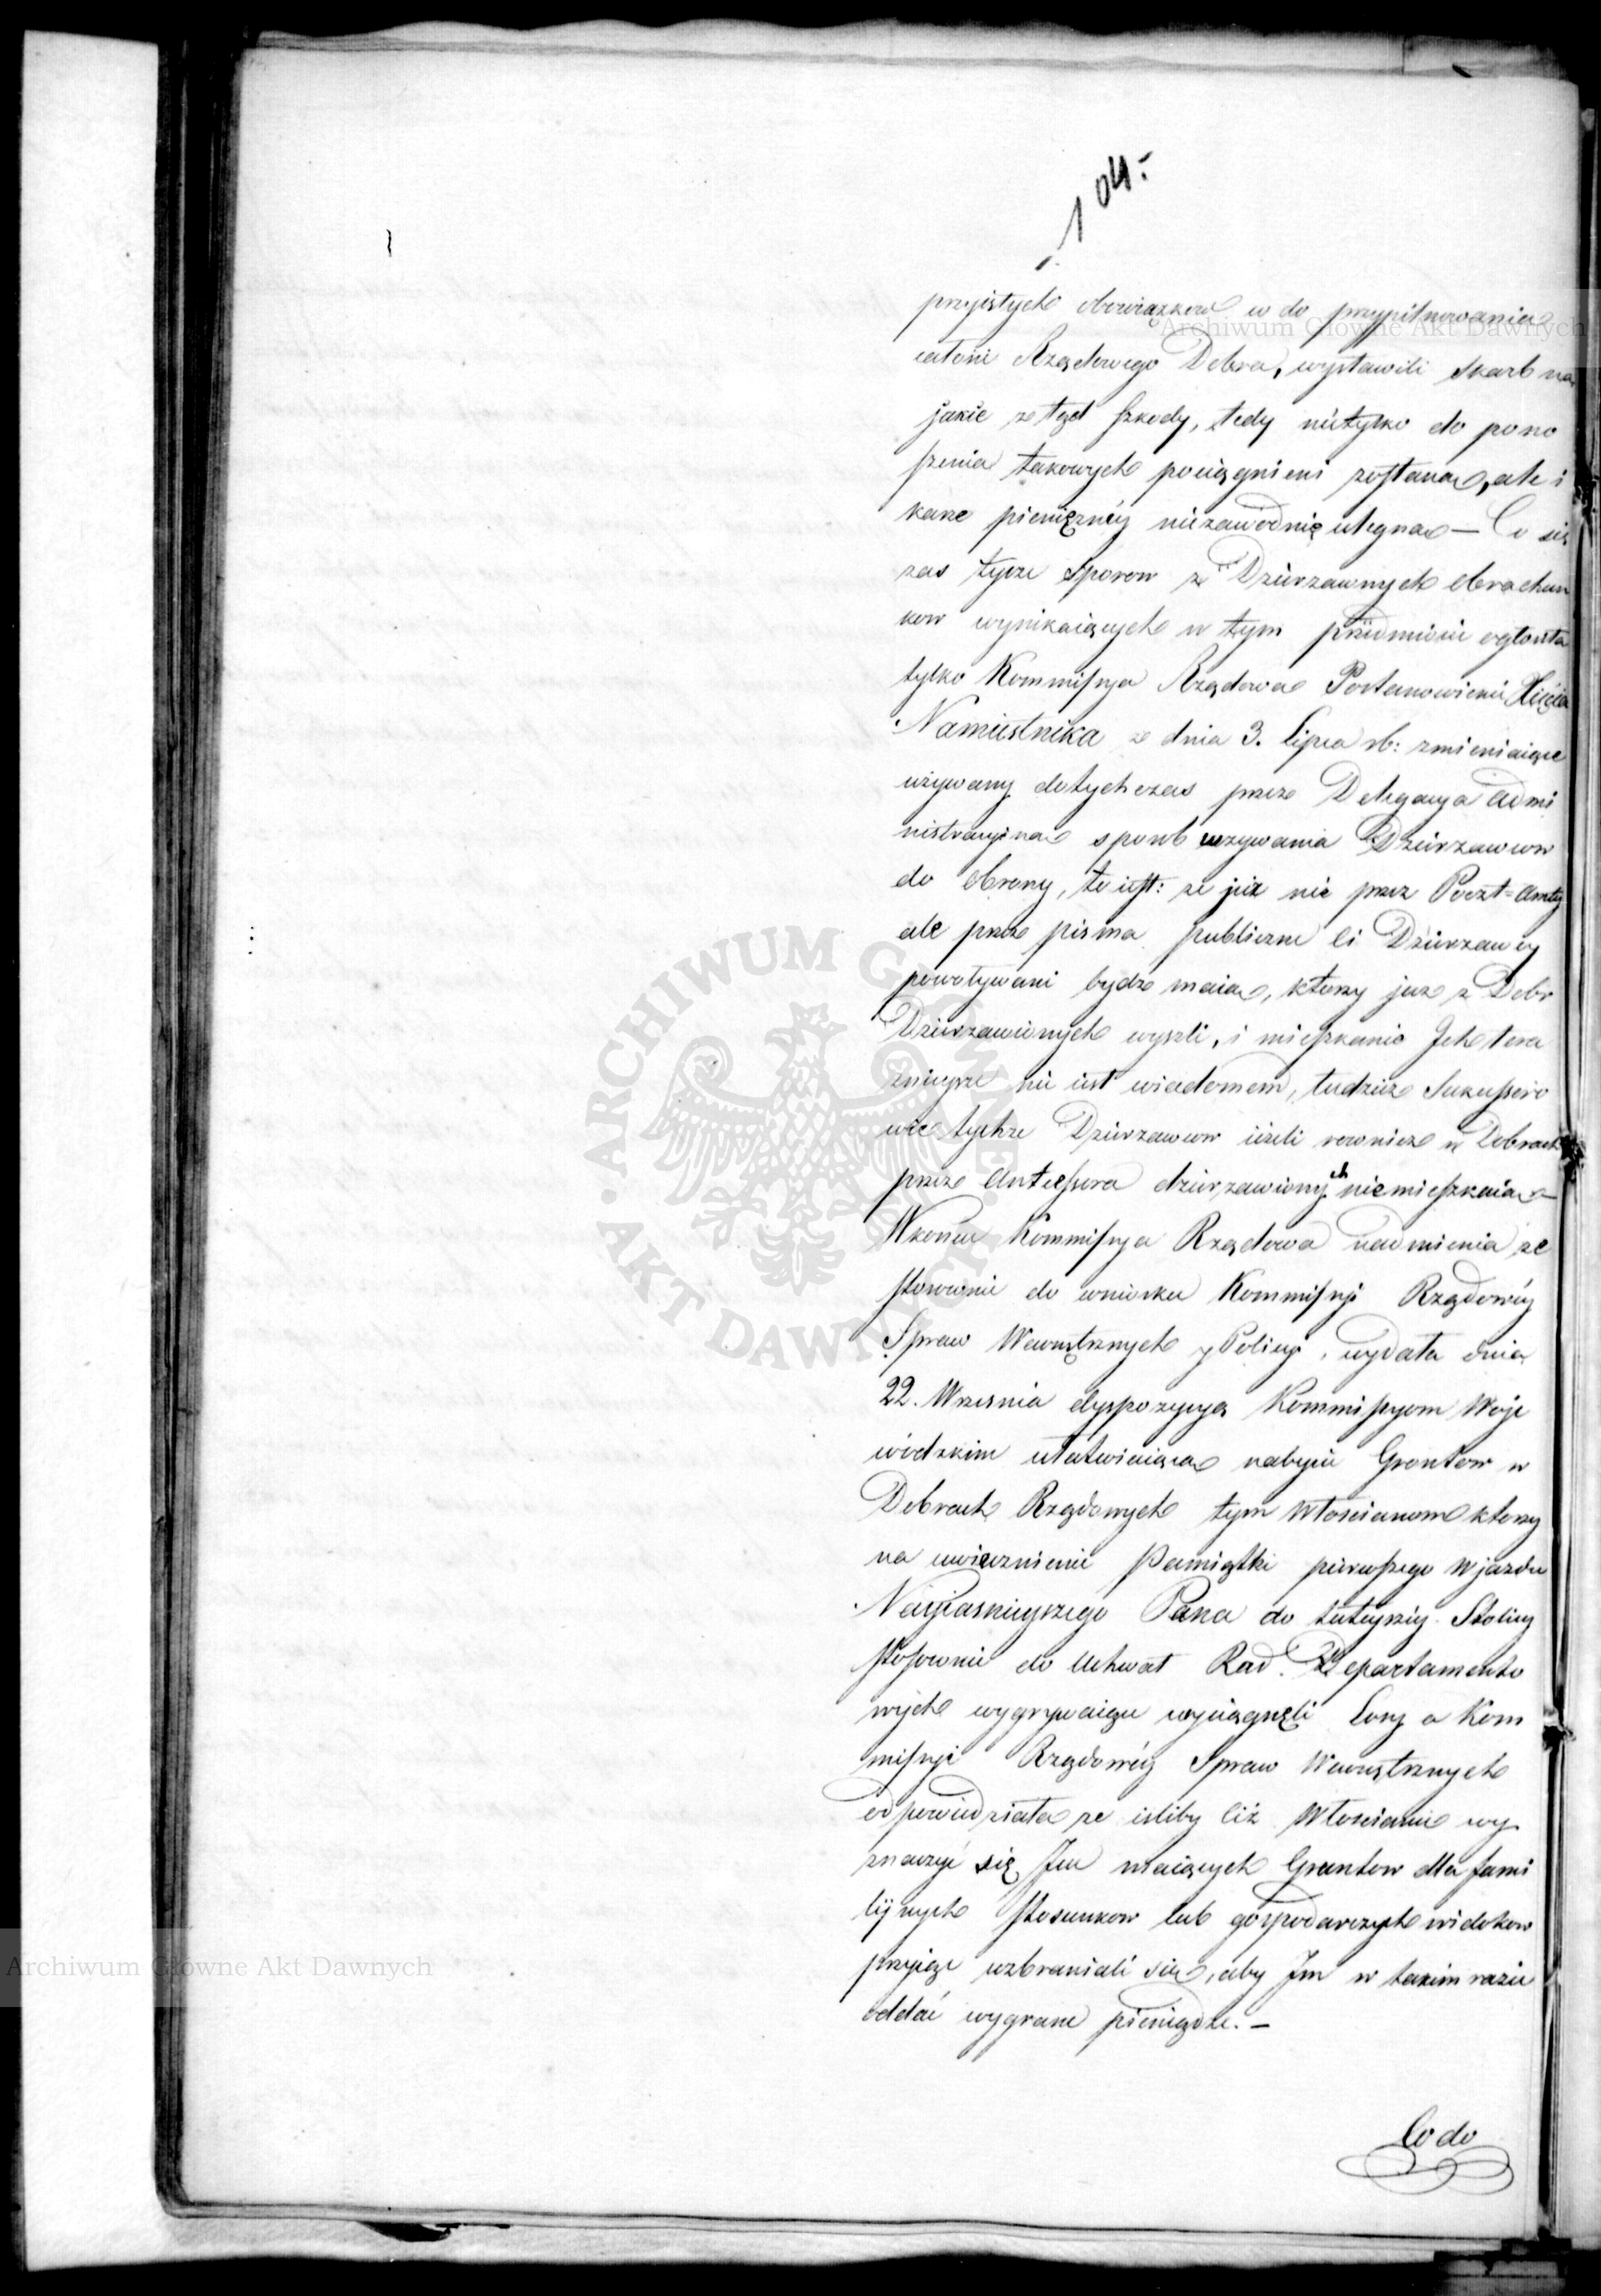 104.
przyiętych obowiązkow w do przypilnowania
całości Rządowego Dobra, wystawili Skarb na
jakie ztąd szkody, tedy nietylko do pono
szenia takowych pociągnieni zostaną, ale i
karze pieniężnéy niezawodnie ulegną — Co się
zas tycze Sporow z Dzierzawnych obrachun
kow wynikaiących w tym przedmiocie ogłosiła
tylko Kommissya Rządowa Postanowienie Xięcia
Namiestnika z dnia 3. Lipca rb: zmieniaiące
używany dotychczas przez Delegacyą Admi
nistracyiną sposob wzywania Dzierzawcow
do obrony, to iest: że już nie przez Poczt=Amty
ale przez pisma publiczne ci Dzierzawcy
powoływani bydz maią, ktorzy juz z Dobr
Dzierzawionych wyszli, i mieszkanie Ich tera
znieysze nie iest wiadomem, tudzież Sukcessoro
wie tychze Dzierzawcow ieżeli rownież w Dobrach
przez Antecessora dzierzawionych niemieszkaią —
Wkońcu Kommissya Rządowa nadmienia ze
stosownie do wniosku Kommissyi Rządowéy
Spraw Wewnętrznych y Policyi, wydała dnia
22. Wrzesnia dyspozycyą Kommissyom Woje
wódzkim ułatwiaiącą nabycie Grontow w
Dobrach Rządowych tym Włoscianom ktorzy
na uwiecznienie Pamiątki pierwszego wjazdu
Nayiasnieyszego Pana do tuteyszéy Stolicy
stosownie do Uchwał Rad Departamento
wych wygrywaiące wyciągnęli Losy a Kom
missyi Rządowéy Spraw Wewnętrznych
odpowiedziała ze iesliby ciż Włoscianie wy
znaczyć się Im maiących Gruntow dla fami
liynych stosunkow lub gospodarczych widokow
przyiąć wzbraniali się, aby Im w takim razie
oddać wygrane pieniądze. —
Co do
Archiwum Główne Akt Dawnych
Archiwum Główne Akt Dawnych
ARCHIWUM GŁÓWNE AKT DAWNYCH